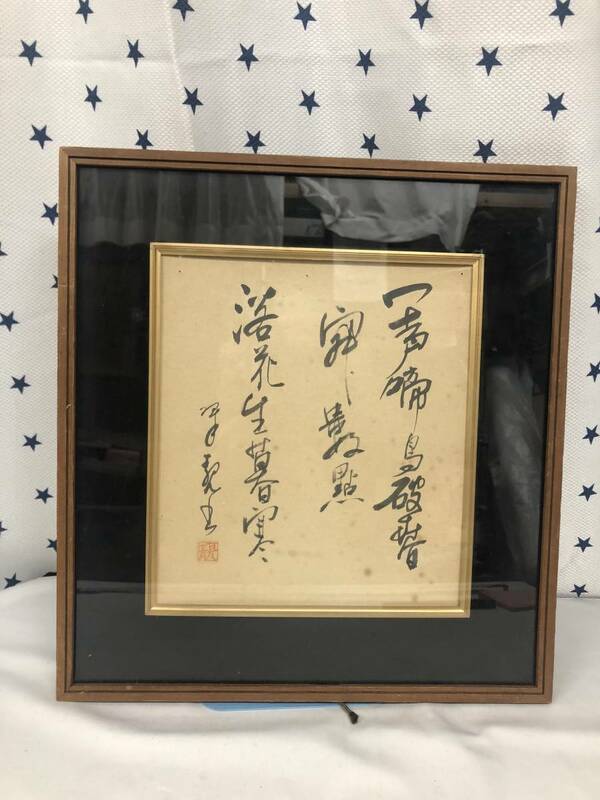 一声啼鳥破春
寂数點
落花生暮寒